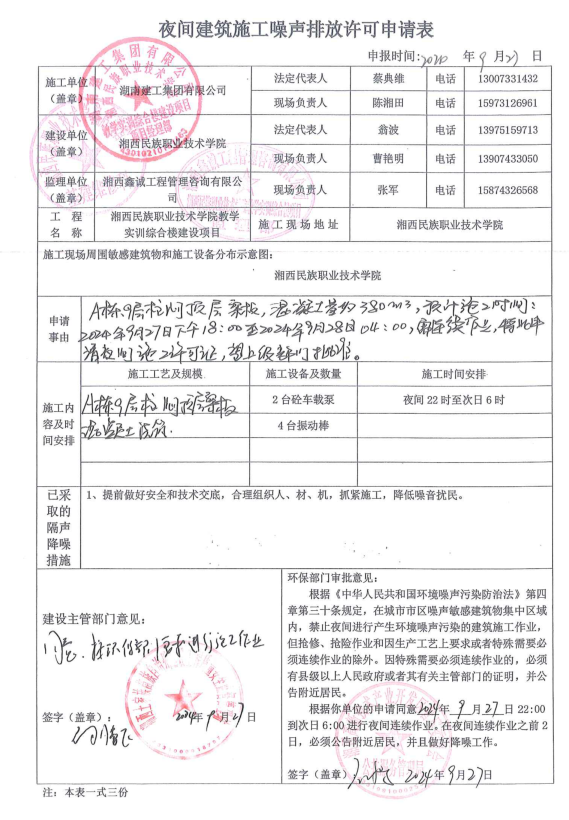 夜间建筑施工噪声排放许可申请表
申报时间:2020 年 9 月 27 日
施工单位（盖章） 湖南建工集团有限公司 法定代表人 蔡典维 电话 13007331432
现场负责人 陈湘田 电话 15973126961
建设单位（盖章） 湘西民族职业技术学院 法定代表人 翁波 电话 13975159713
现场负责人 曹艳明 电话 13907433050
监理单位（盖章） 湘西鑫诚工程管理咨询有限公司 现场负责人 张军 电话 15874326568
工程名称 湘西民族职业技术学院教学实训综合楼建设项目 施工现场地址 湘西民族职业技术学院
施工现场周围敏感建筑物和施工设备分布示意图:
湘西民族职业技术学院
申请事由
A栋9层柱 顶层梁板，混凝土 380m3，预计施工时间：
2024年9月27日下午18:00至2024年9月28日04:00，
请夜间施工许可证，望上级部门批准。
施工内容及时间安排
施工工艺及规模 施工设备及数量 施工时间安排
A栋9层柱 顶层梁板 2 台砼车载泵 夜间 22 时至次日 6 时
混凝土浇筑. 4 台振动棒
已采取的隔声降噪措施
1、提前做好安全和技术交底，合理组织人、材、机，抓紧施工，降低噪音扰民。
建设主管部门意见:
同意. 按环保部门要求进行施工作业
签字（盖章）: 2024年9月27日
环保部门审批意见:
根据《中华人民共和国环境噪声污染防治法》第四
章第三十条规定，在城市市区噪声敏感建筑物集中区域
内，禁止夜间进行产生环境噪声污染的建筑施工作业，
但抢修、抢险作业和因生产工艺上要求或者特殊需要必
须连续作业的除外。因特殊需要必须连续作业的，必须
有县级以上人民政府或者其有关主管部门的证明，并公
告附近居民。
根据你单位的申请同意2024年 9 月 27 日 22:00
到次日 6:00 进行夜间连续作业。在夜间连续作业之前 2
日，必须公告附近居民，并且做好降噪工作。
签字（盖章） 2024年9月27日
注：本表一式三份